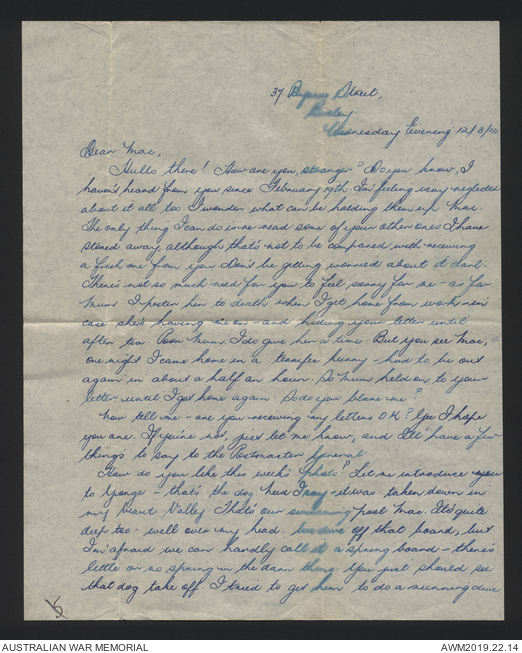 37 Street,
Wednesday Evening 12/3/
Dear Mac,
Hullo there! How are you stranger? Do you know, I
haven't heard from you since February 19th. I'm feeling very neglected
about it all too I wonder what can be holding them up Mac.
The only thing I can do is re-read some of your other ones I have
stored away although that's not to be compared with receiving
a fresh one from you Don't be getting worried about it darl.
There's not so much need for you to feel sorry for me - as for
Mum I pester her to death when I get home from work - in
case she's having me on - and hiding your letter until
after tea Poor Mum. I do give her a time But you see Mac,
one night I came home in a tearing hurry - had to be out
again in about a half an hour. So Mum held on to your
letter until I got home again. So do you blame me?
Now tell me - are you receiving my letters OK? Gee I hope
you are. If you're not, just let me know, and I'll have a few
things to say to the Postmaster General
How do you like this week's photo? Let me introduce you
to Yonge - that's the dog and - it was taken down in
my Valley That's our swimming pool Mac. It's quite
deep too - well over my head. We dive off that board, but
I'm afraid we can hardly call it a spring board - there's
little or no spring in the darn thing You just should see
that dog take off I tried to get him to do a running dive
AUSTRALIAN WAR MEMORIAL
AWM2019.22.14